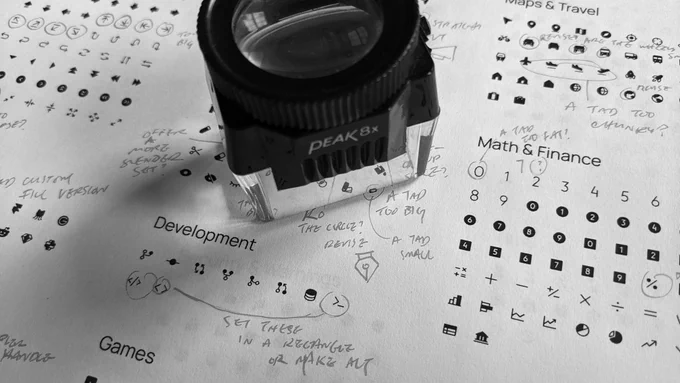 Maps & Travel
A TAD
TOO
CHUNKY?
PEAK 8x
OFFER
A
MORE
SLENDER
SET?
CUSTOM
FILL VERSION
A TAD
TOO BIG
THE CIRCLE?
REVISE
A TAD
SMALL
Math & Finance
A TAD
TOO FAT?
0 1 2 3 4 5 6
7 ?
8 9 0 1 2 3 4
6 7 8 9 0 1 2
4 5 6 7 8 9
%
+ − × ÷ =
Development
</> <> >_
SET THESE
IN A RECTANGLE
OR MAKE ALT
Games
HANDLE